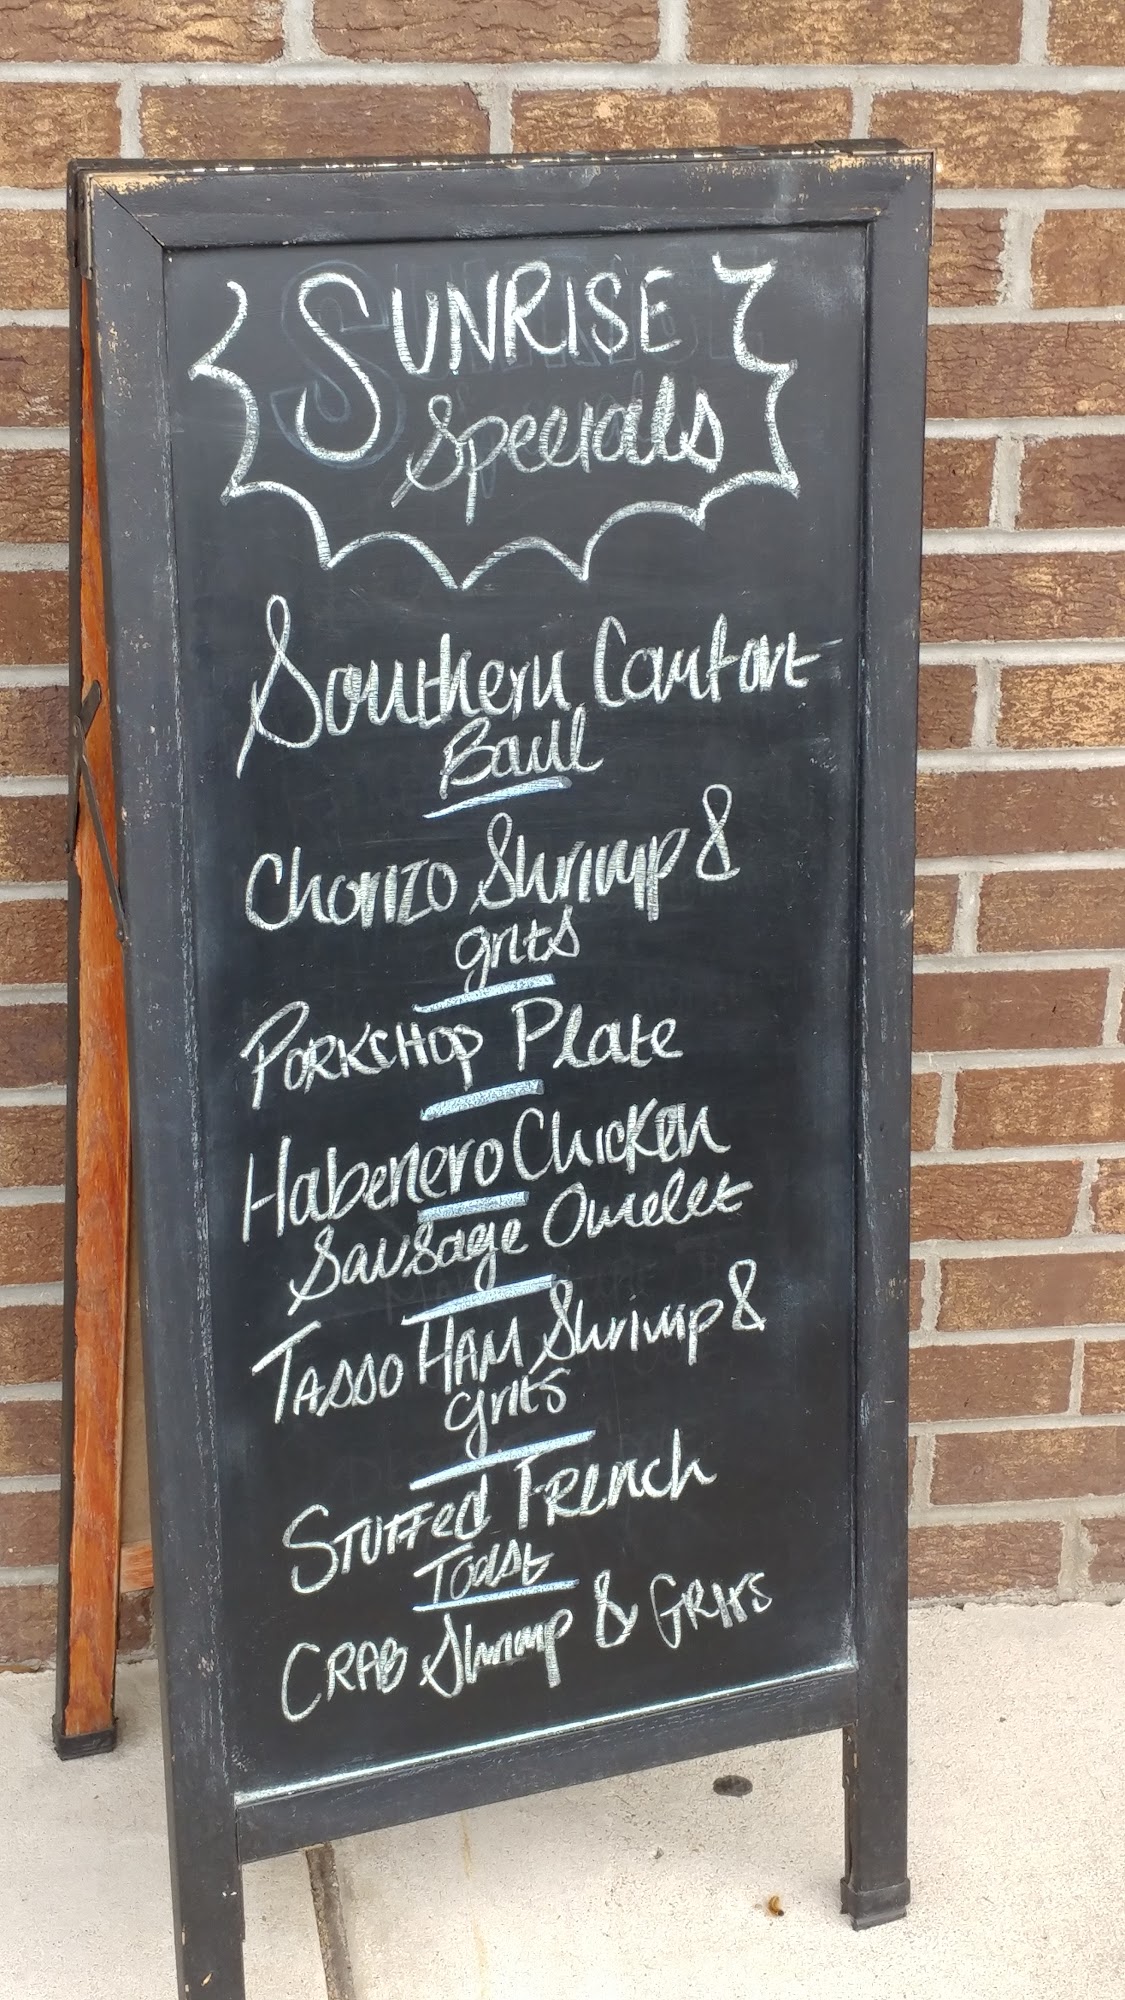 SUNRISE
Specials
Southern Comfort
Bowl
Chorizo Shrimp &
grits
PORKCHOP Plate
Habenero Chicken
Sausage Omelet
TASSO HAM Shrimp &
grits
STUFFed FRENch
TOAST
CRAB Shrimp & GRITS